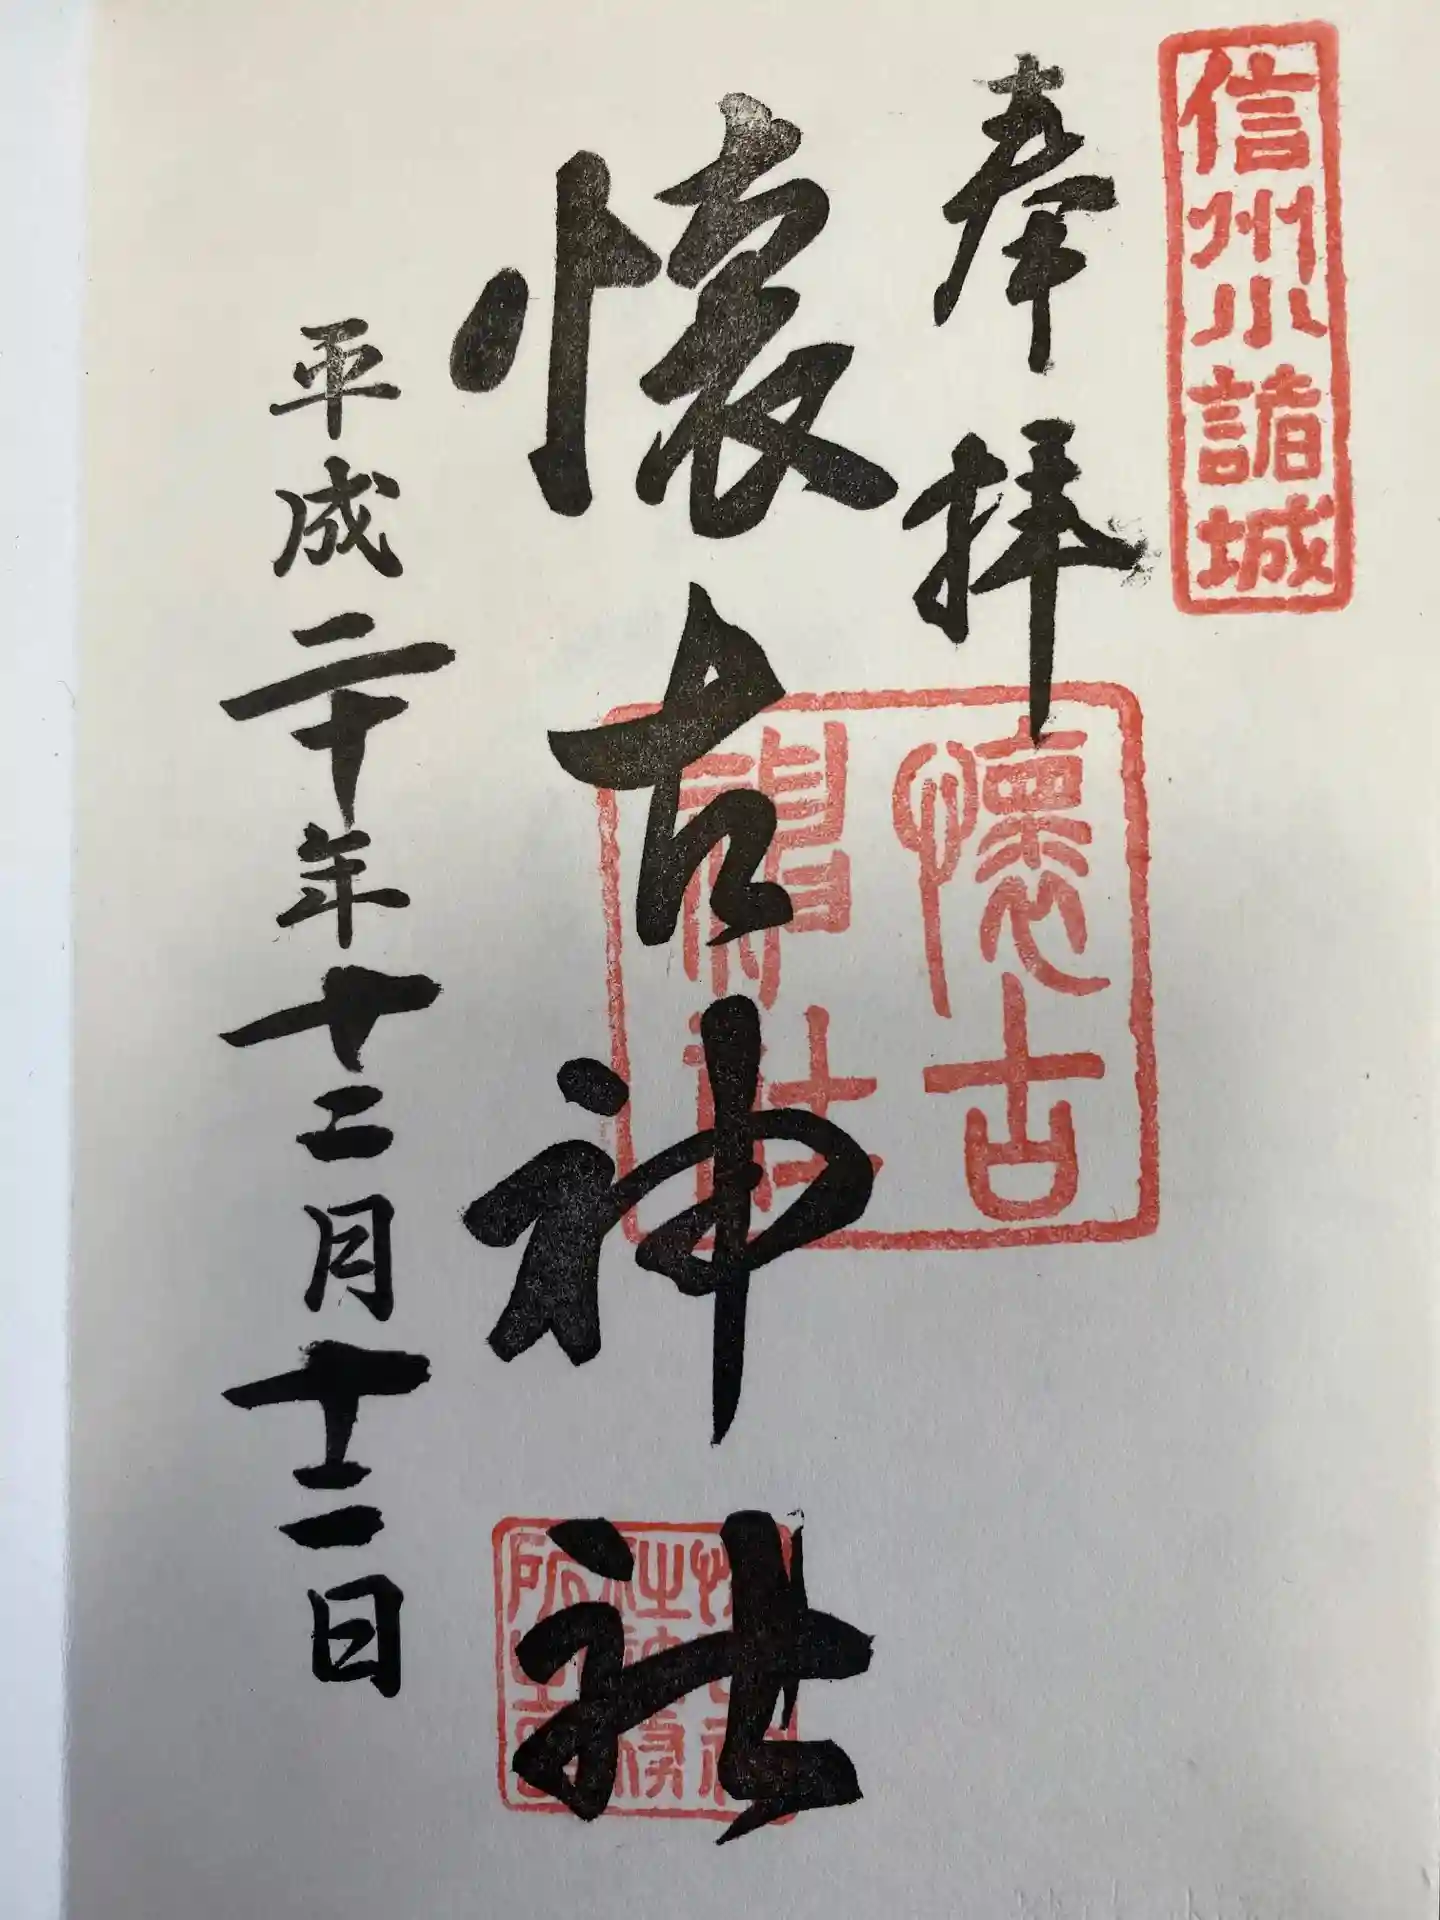 信州小諸城
奉拝
懐古神社
平成二十年十二月十二日
懷古
神社